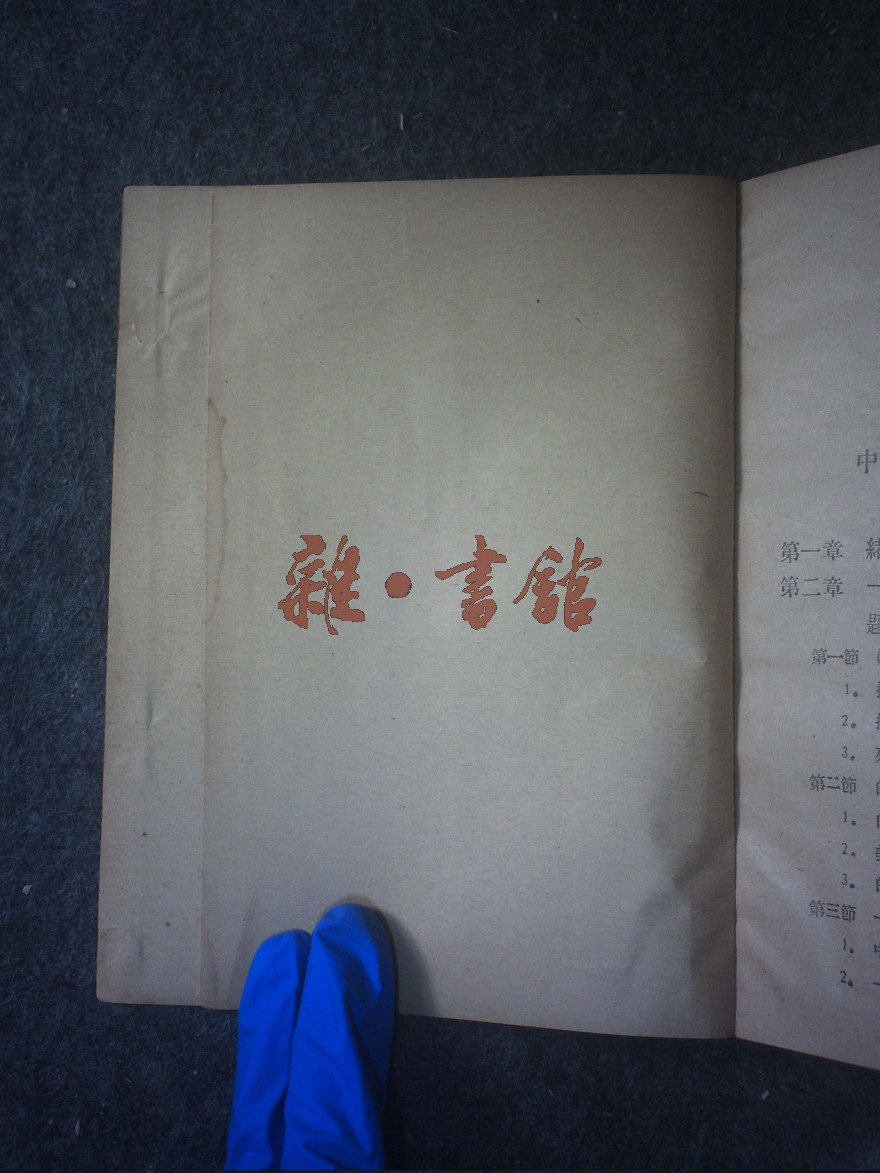 雜·書館
中
第一章 緒
第二章 一
題
第一節
1。
2。
3。
第二節
1。
2。
3。
第三節
1。
2。